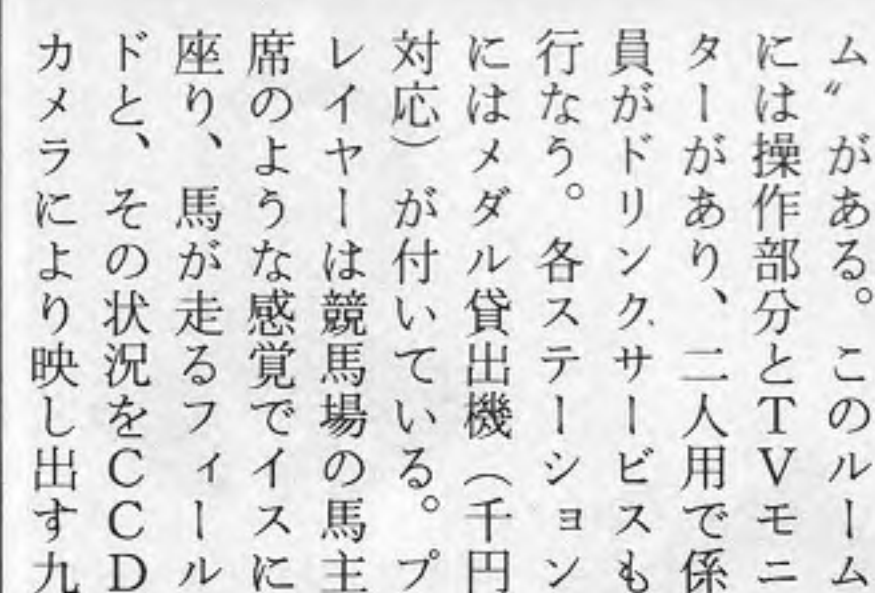 ム〟がある。このルーム
には操作部分とTVモニ
ターがあり、二人用で係
員がドリンク、サービスも
行なう。各ステーション
にはメダル貸出機（千円
対応）が付いている。プ
レイヤーは競馬場の馬主
席のような感覚でイスに
座り、馬が走るフィール
ドと、その状況をCCD
カメラにより映し出す九